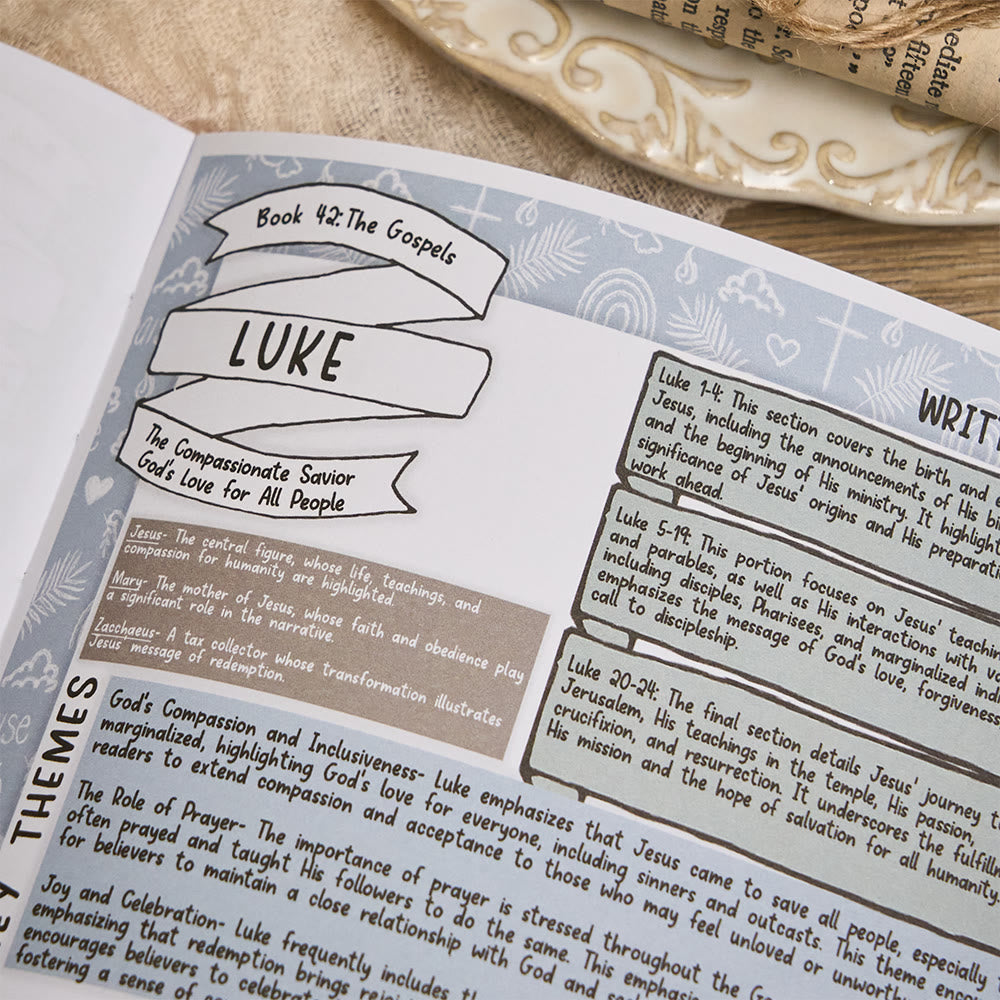 Book 42: The Gospels
LUKE
The Compassionate Savior
God's Love for All People
Jesus- The central figure, whose life, teachings, and
compassion for humanity are highlighted.
Mary- The mother of Jesus, whose faith and obedience play
a significant role in the narrative.
Zacchaeus- A tax collector whose transformation illustrates
Jesus' message of redemption.
Luke 1-4: This section covers the birth and
Jesus, including the announcements of His
and the beginning of His ministry. It
significance of Jesus' origins and His
work ahead.
Luke 5-19: This portion focuses on Jesus'
and parables, as well as His interactions with
including disciples, Pharisees, and marginalized
emphasizes the message of God's love, forgiveness
call to discipleship.
Luke 20-24: The final section details Jesus' journey
Jerusalem, His teachings in the temple, His passion,
crucifixion, and resurrection. It underscores the
His mission and the hope of salvation for all humanity.
THEMES
God's Compassion and Inclusiveness- Luke emphasizes that Jesus came to save all people, especially
marginalized, highlighting God's love for everyone, including sinners and outcasts. This theme
readers to extend compassion and acceptance to those who may feel unloved or
The Role of Prayer- The importance of prayer is stressed throughout the
often prayed and taught His followers to do the same. This
for believers to maintain a close relationship with God and
Joy and Celebration- Luke frequently includes
emphasizing that redemption brings
encourages believers to
fostering a sense of
mediate
fifteen